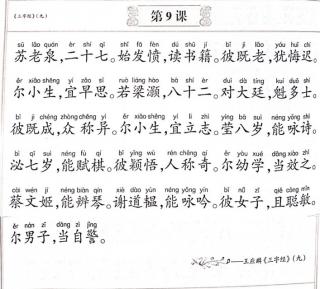 《三字经》(九)
第9课
sū lǎo quán èr shí qī shǐ fā fèn dú shū jí bǐ jì lǎo yóu huǐ chí
苏老泉,二十七。始发愤,读书籍。彼既老,犹悔迟。
ěr xiǎo shēng yí zǎo sī ruò liáng hào bā shí èr duì dà tíng kuí duō shì
尔小生,宜早思。若梁灏,八十二。对大廷,魁多士。
bǐ jì chéng zhòng chēng yì ěr xiǎo shēng yí lì zhì yíng bā suì néng yǒng shī
彼既成,众称异。尔小生,宜立志。莹八岁,能咏诗。
bì qī suì néng fù qí bǐ yǐng wù rén chēng qí ěr yòu xué dāng xiào zhī
泌七岁,能赋棋。彼颖悟,人称奇。尔幼学,当效之。
cài wén jī néng biàn qín xiè dào yùn néng yǒng yín bǐ nǚ zǐ qiě cōng mǐn
蔡文姬,能辨琴。谢道韫,能咏吟。彼女子,且聪敏。
ěr nán zǐ dāng zì jǐng
尔男子,当自警。
——王应麟《三字经》(九)